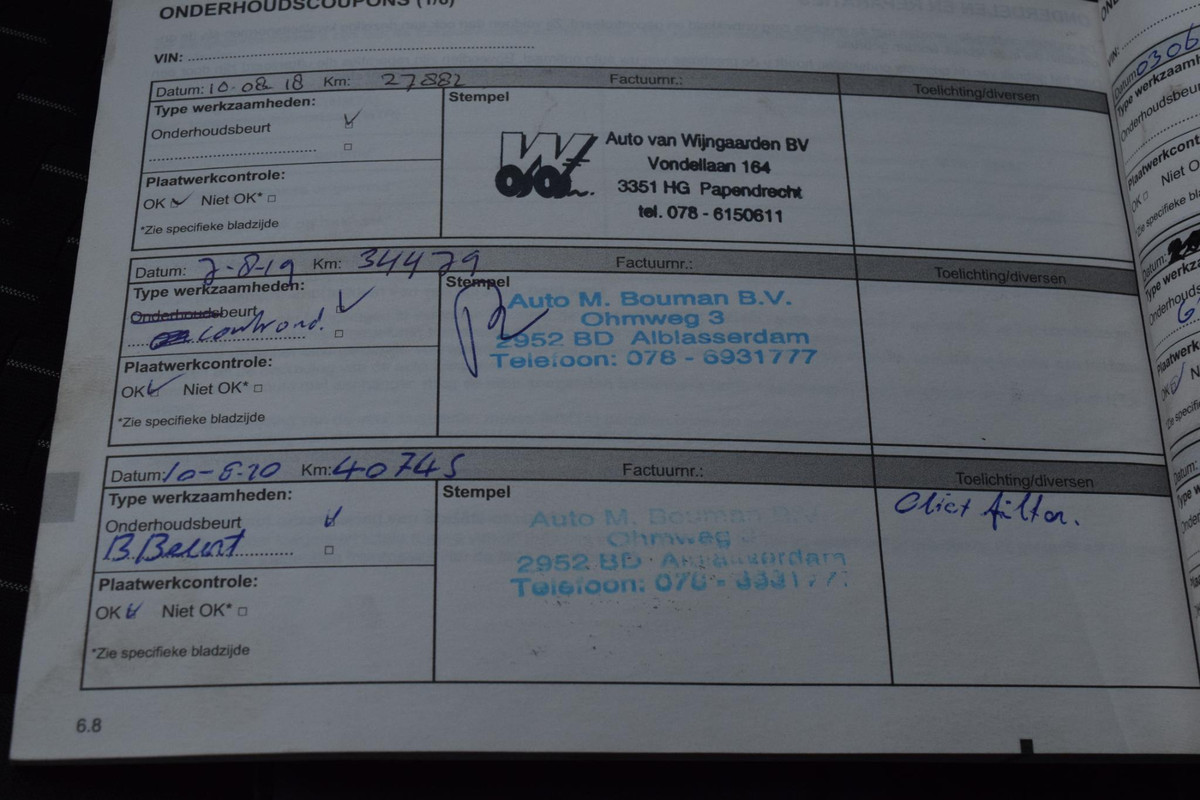 ONDERHOUDSCOUPONS (1/6)
VIN:
Datum: 10-08-18 Km: 27882 Factuurnr.: Toelichting/diversen
Type werkzaamheden:
Stempel
Onderhoudsbeurt
Plaatwerkcontrole:
OK Niet OK*
*Zie specifieke bladzijde
Auto van Wijngaarden BV
Vondellaan 164
3351 HG Papendrecht
tel. 078 - 6150611
Datum: 7-8-19 Km: 34479 Factuurnr.: Toelichting/diversen
Type werkzaamheden:
Stempel
Onderhoudsbeurt
Plaatwerkcontrole:
OK Niet OK*
*Zie specifieke bladzijde
Auto M. Bouman B.V.
Ohmweg 3
2952 BD Alblasserdam
Telefoon: 078 - 6931777
Datum: 10-8-20 Km: 40745 Factuurnr.: Toelichting/diversen
Type werkzaamheden:
Stempel
Onderhoudsbeurt
B. Beurt
Plaatwerkcontrole:
OK Niet OK*
*Zie specifieke bladzijde
Auto M. Bouman B.V.
Ohmweg
2952 BD Alblasserdam
Telefoon: 078 - 6931777
filter.
6.8
VIN:
Datum: 0306
Type werkzaamh
Onderhoudsbeu
Plaatwerkcont
OK Niet O
Datum:
Type werkza
Onderhouds
Plaatwerk
OK
Datum: